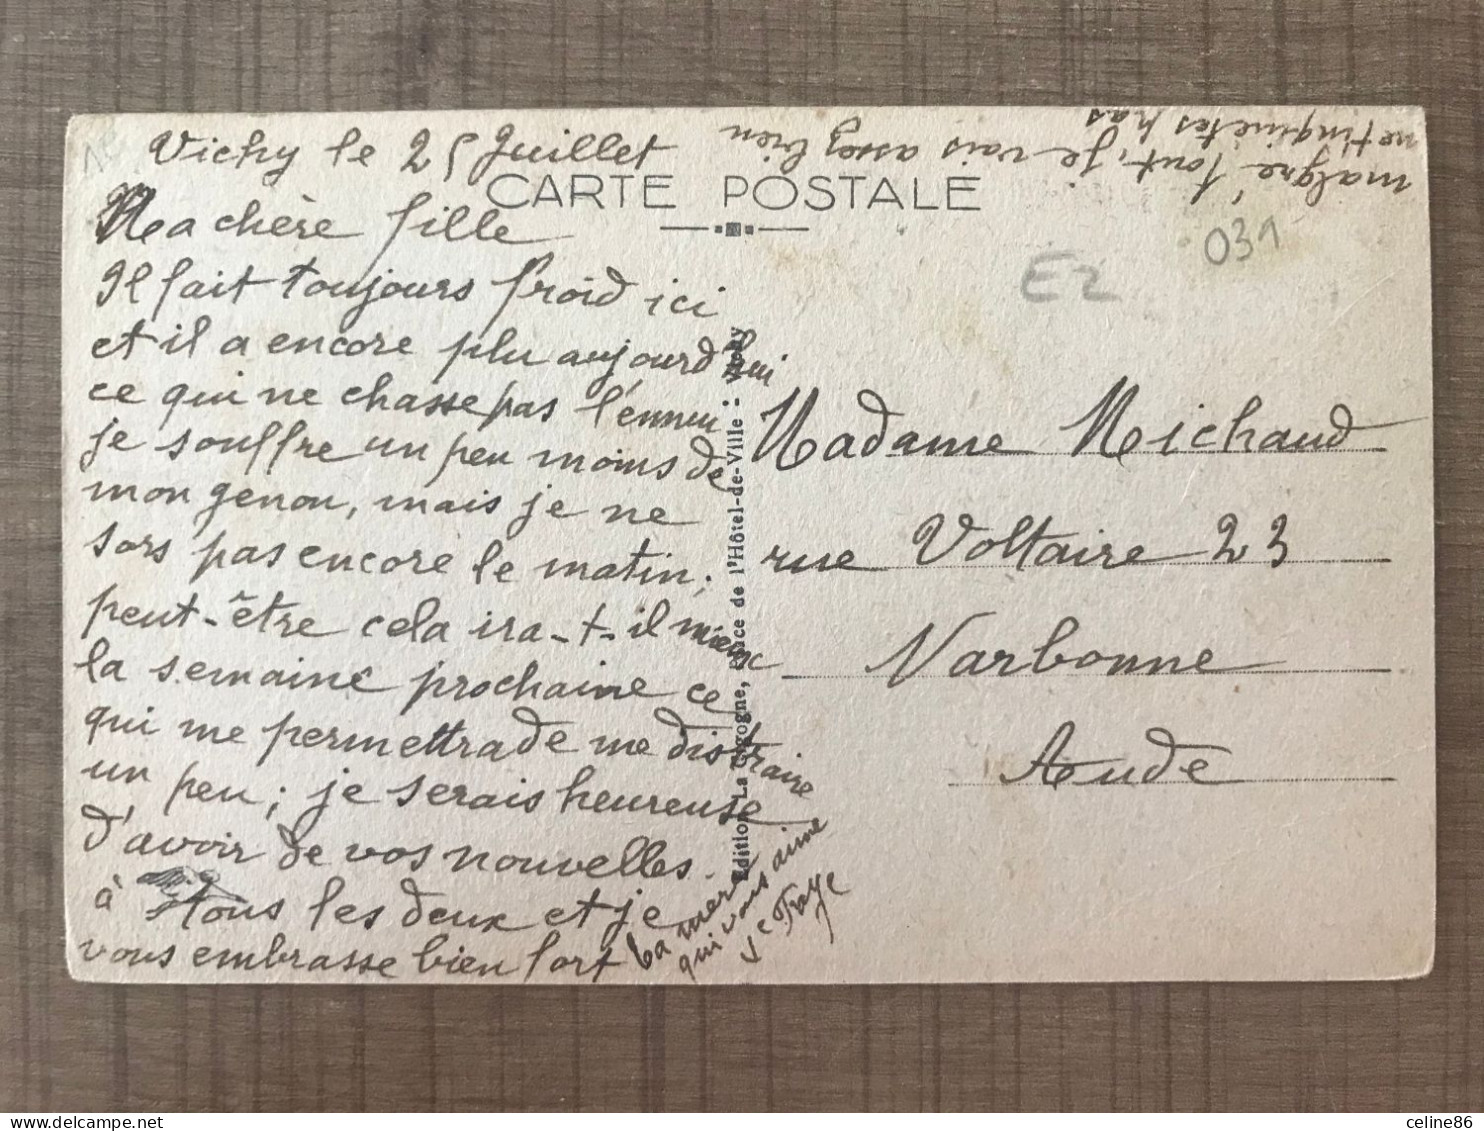 Vichy le 25 Juillet
CARTE POSTALE
Ma chère fille
Il fait toujours froid ici
et il a encore plu aujourd'hui
ce qui ne chasse pas l'ennui
je souffre un peu moins de
mon genou, mais je ne
sors pas encore le matin;
peut-être cela ira-t-il mieux
la semaine prochaine ce
qui me permettra de me distraire
un peu; je serais heureuse
d'avoir de vos nouvelles.
à tous les deux et je
vous embrasse bien fort
ta mère
qui vous aime
malgré tout, je vais assez bien
ne t'inquiètes pas
Edition La Cigogne, place de l'Hôtel-de-Ville : Vichy
E2
031
Madame Michaud
rue Voltaire 23
Narbonne
Aude
celine86